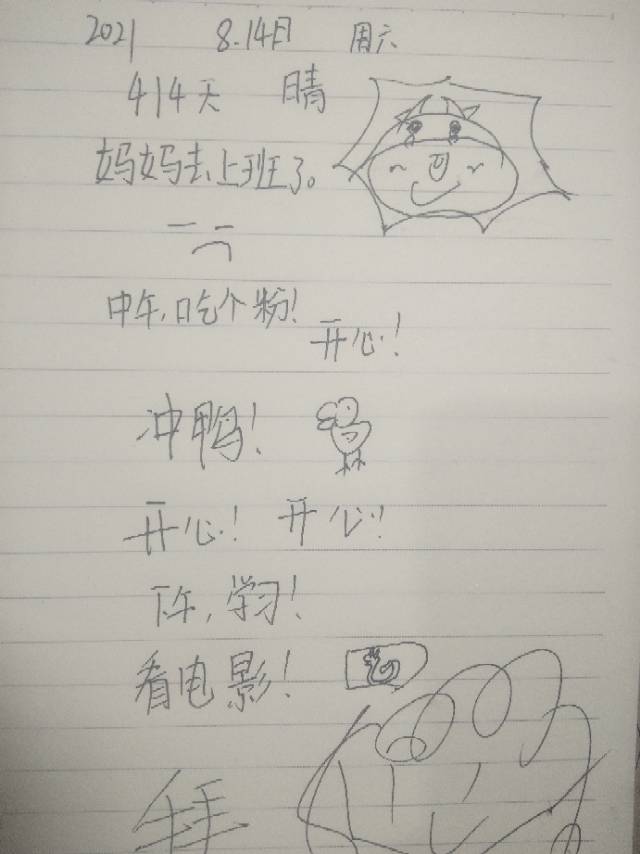 2021 8.14日 周六
414天 晴
妈妈去上班了。
中午,吃个粉!
开心!
冲鸭!
开心! 开心!
下午,学习!
看电影!